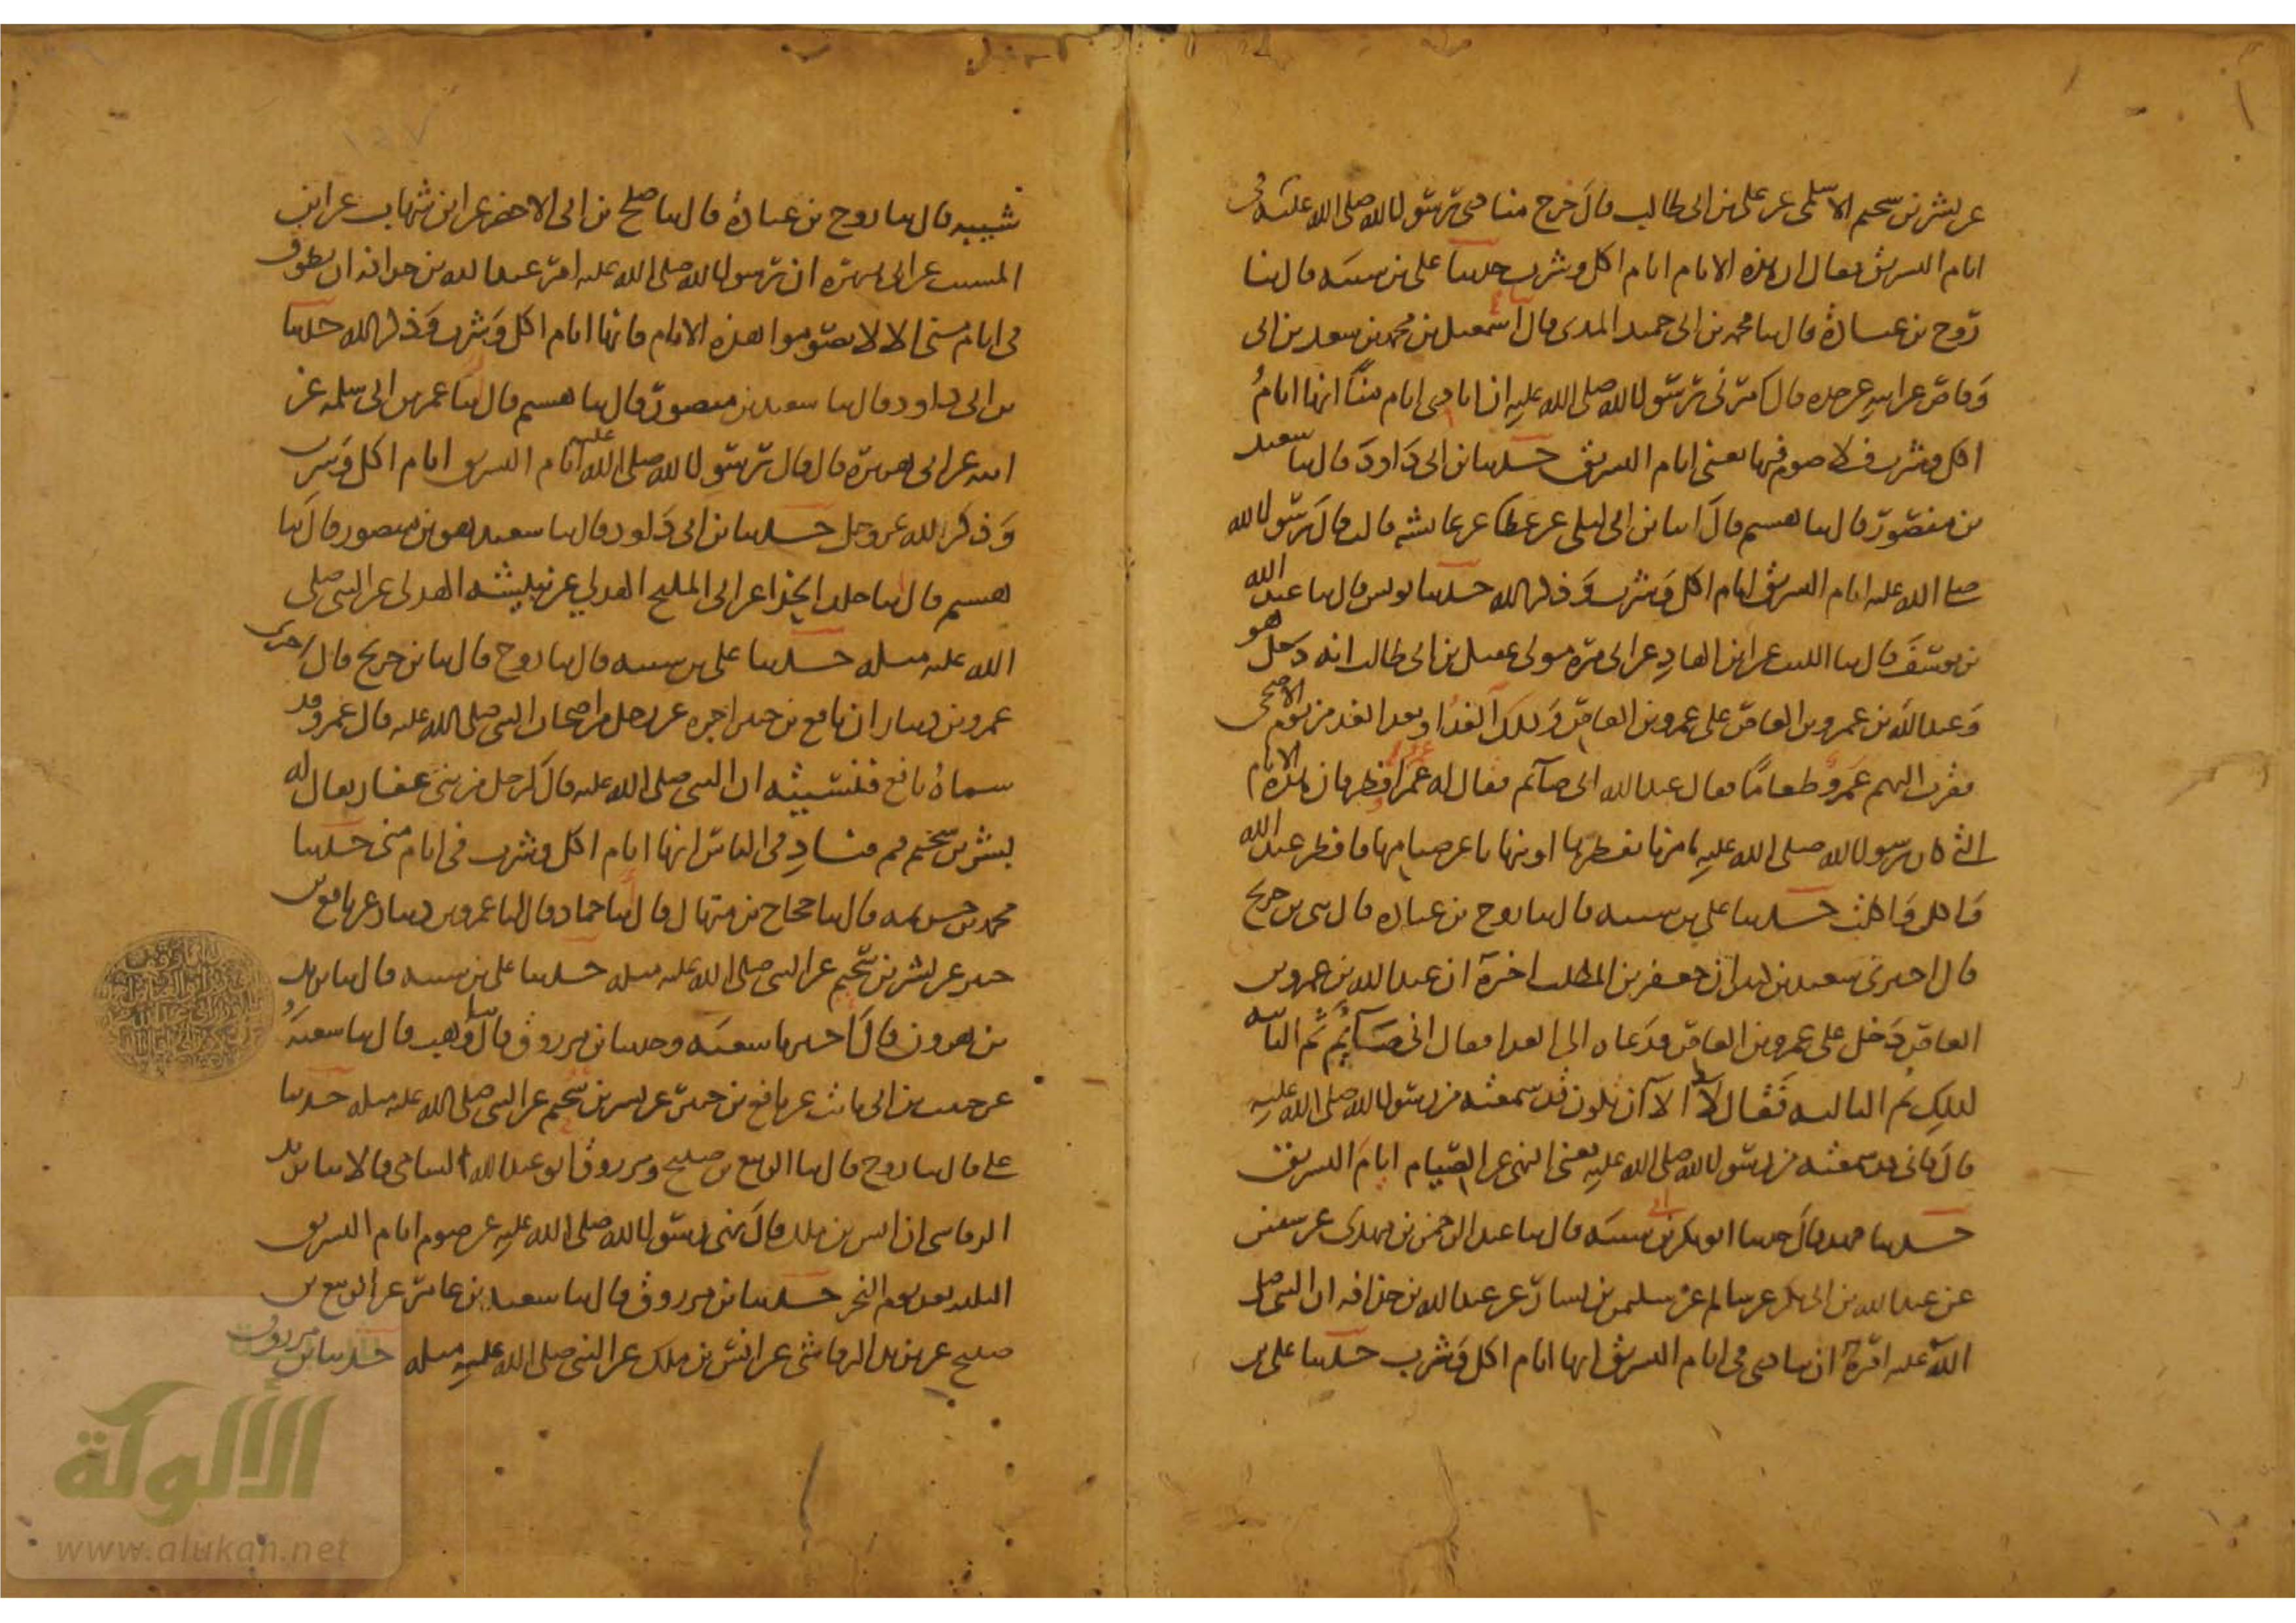 عن بشر بن سحيم الاسلمي عن علي بن ابي طالب قال خرج منادي رسول الله صلى الله عليه في
ايام التشريق فقال ان هذه الايام ايام اكل وشرب حدثنا علي بن شيبه قال ثنا
روح بن عبادة قال ثنا محمد بن ابي حميد المدني قال ثنا اسمعيل بن محمد بن سعد بن ابي
وقاص عن ابيه عن جده قال امرني رسول الله صلى الله عليه ان انادي ايام منا انها ايام
اكل وشرب فلا صوم فيها يعني ايام التشريق حدثنا بن ابي داود قال ثنا سعيد
بن منصور قال ثنا هشيم قال انا بن ابي ليلى عن عطا عن عائشه قالت قال رسول الله
صلى الله عليه ايام التشريق ايام اكل وشرب وذكر الله حدثنا يونس قال ثنا عبد الله
بن يوسف قال ثنا الليث عن ابن الهاد عن ابي مرة مولى عقيل بن ابي طالب انه دخل هو
وعبد الله بن عمرو بن العاص على عمرو بن العاص وذلك الغد او بعد الغد من يوم الاضحى
فقرب اليهم عمرو طعاما فقال عبد الله اني صائم فقال له عمرو افطر فان هذه الايام
التي كان رسول الله صلى الله عليه يامرنا بفطرها او ينهانا عن صيامها فافطر عبد الله
فاكل واكلت حدثنا علي بن شيبه قال ثنا روح بن عباده قال ثني بن جريج
قال اخبرني سعيد بن كثير ان جعفر بن المطلب اخبره ان عبد الله بن عمرو بن
العاص دخل على عمرو بن العاص فدعاه الى الغدا فقال اني صائم ثم الثانيه
كذلك ثم الثالثه فقال لا الا ان تكون قد سمعته من رسول الله صلى الله عليه
قال فاني قد سمعته من رسول الله صلى الله عليه يعني النهي عن الصيام ايام التشريق
حدثنا محمد قال حدثنا ابو بكر بن ابي شيبه قال ثنا عبد الرحمن بن مهدي عن سفين
عن عبد الله بن ابي بكر عن سالم عن سليمن بن يسار عن عبد الله بن حذافه ان النبي صلى
الله عليه امره ان ينادي في ايام التشريق انها ايام اكل وشرب حدثنا علي بن
شيبه قال ثنا روح بن عبادة قال ثنا صلح بن ابي الاخضر عن ابن شهاب عن ابن
المسيب عن ابي هريره ان رسول الله صلى الله عليه امر عبد الله بن حذافه ان يطوف
في ايام منى الا لا تصوموا هذه الايام فانها ايام اكل وشرب وذكر الله حدثنا
بن ابي داود قال ثنا سعيد بن منصور قال ثنا هشيم قال انا عمر بن ابي سلمه عن
ابيه عن ابي هريرة قال قال رسول الله صلى الله عليه ايام التشريق ايام اكل وشرب
وذكر الله عز وجل حدثنا بن ابي داود قال ثنا سعيد هو بن منصور قال ثنا
هشيم قال انا خلد الحذا عن ابي المليح الهذلي عن نبيشه الهذلي عن النبي صلى
الله عليه مثله حدثنا علي بن شيبه قال ثنا روح قال ثنا بن جريج قال اخبرني
عمرو بن دينار ان نافع بن جبير اخبره عن رجل من اصحاب النبي صلى الله عليه قال عمرو قد
سماه نافع فنسيته ان النبي صلى الله عليه قال لرجل من بني غفار يقال له
بشر بن سحيم قم فناد في الناس انها ايام اكل وشرب في ايام منى حدثنا
محمد بن خزيمه قال ثنا حجاج بن منهال قال ثنا حماد قال انا عمرو بن دينار عن نافع بن
جبير عن بشر بن سحيم عن النبي صلى الله عليه مثله حدثنا علي بن شيبه قال ثنا يزيد
بن هرون قال اخبرنا شعبه وحدثنا بن مرزوق قال ثنا وهب قال ثنا شعبه
عن حبيب بن ابي ثابت عن نافع بن جبير عن بشر بن سحيم عن النبي صلى الله عليه مثله حدثنا
علي قال ثنا روح قال ثنا الربيع بن صبيح ومرزوق ابو عبد الله الشامي قالا ثنا يزيد
الرقاشي ان انس بن ملك قال نهى رسول الله صلى الله عليه عن صوم ايام التشريق
الثلثه بعد يوم النحر حدثنا بن مرزوق قال ثنا سعيد بن عامر عن الربيع بن
صبيح عن يزيد الرقاشي عن انس بن ملك عن النبي صلى الله عليه مثله حدثنا بن مرزوق
الألوكة
www.alukah.net